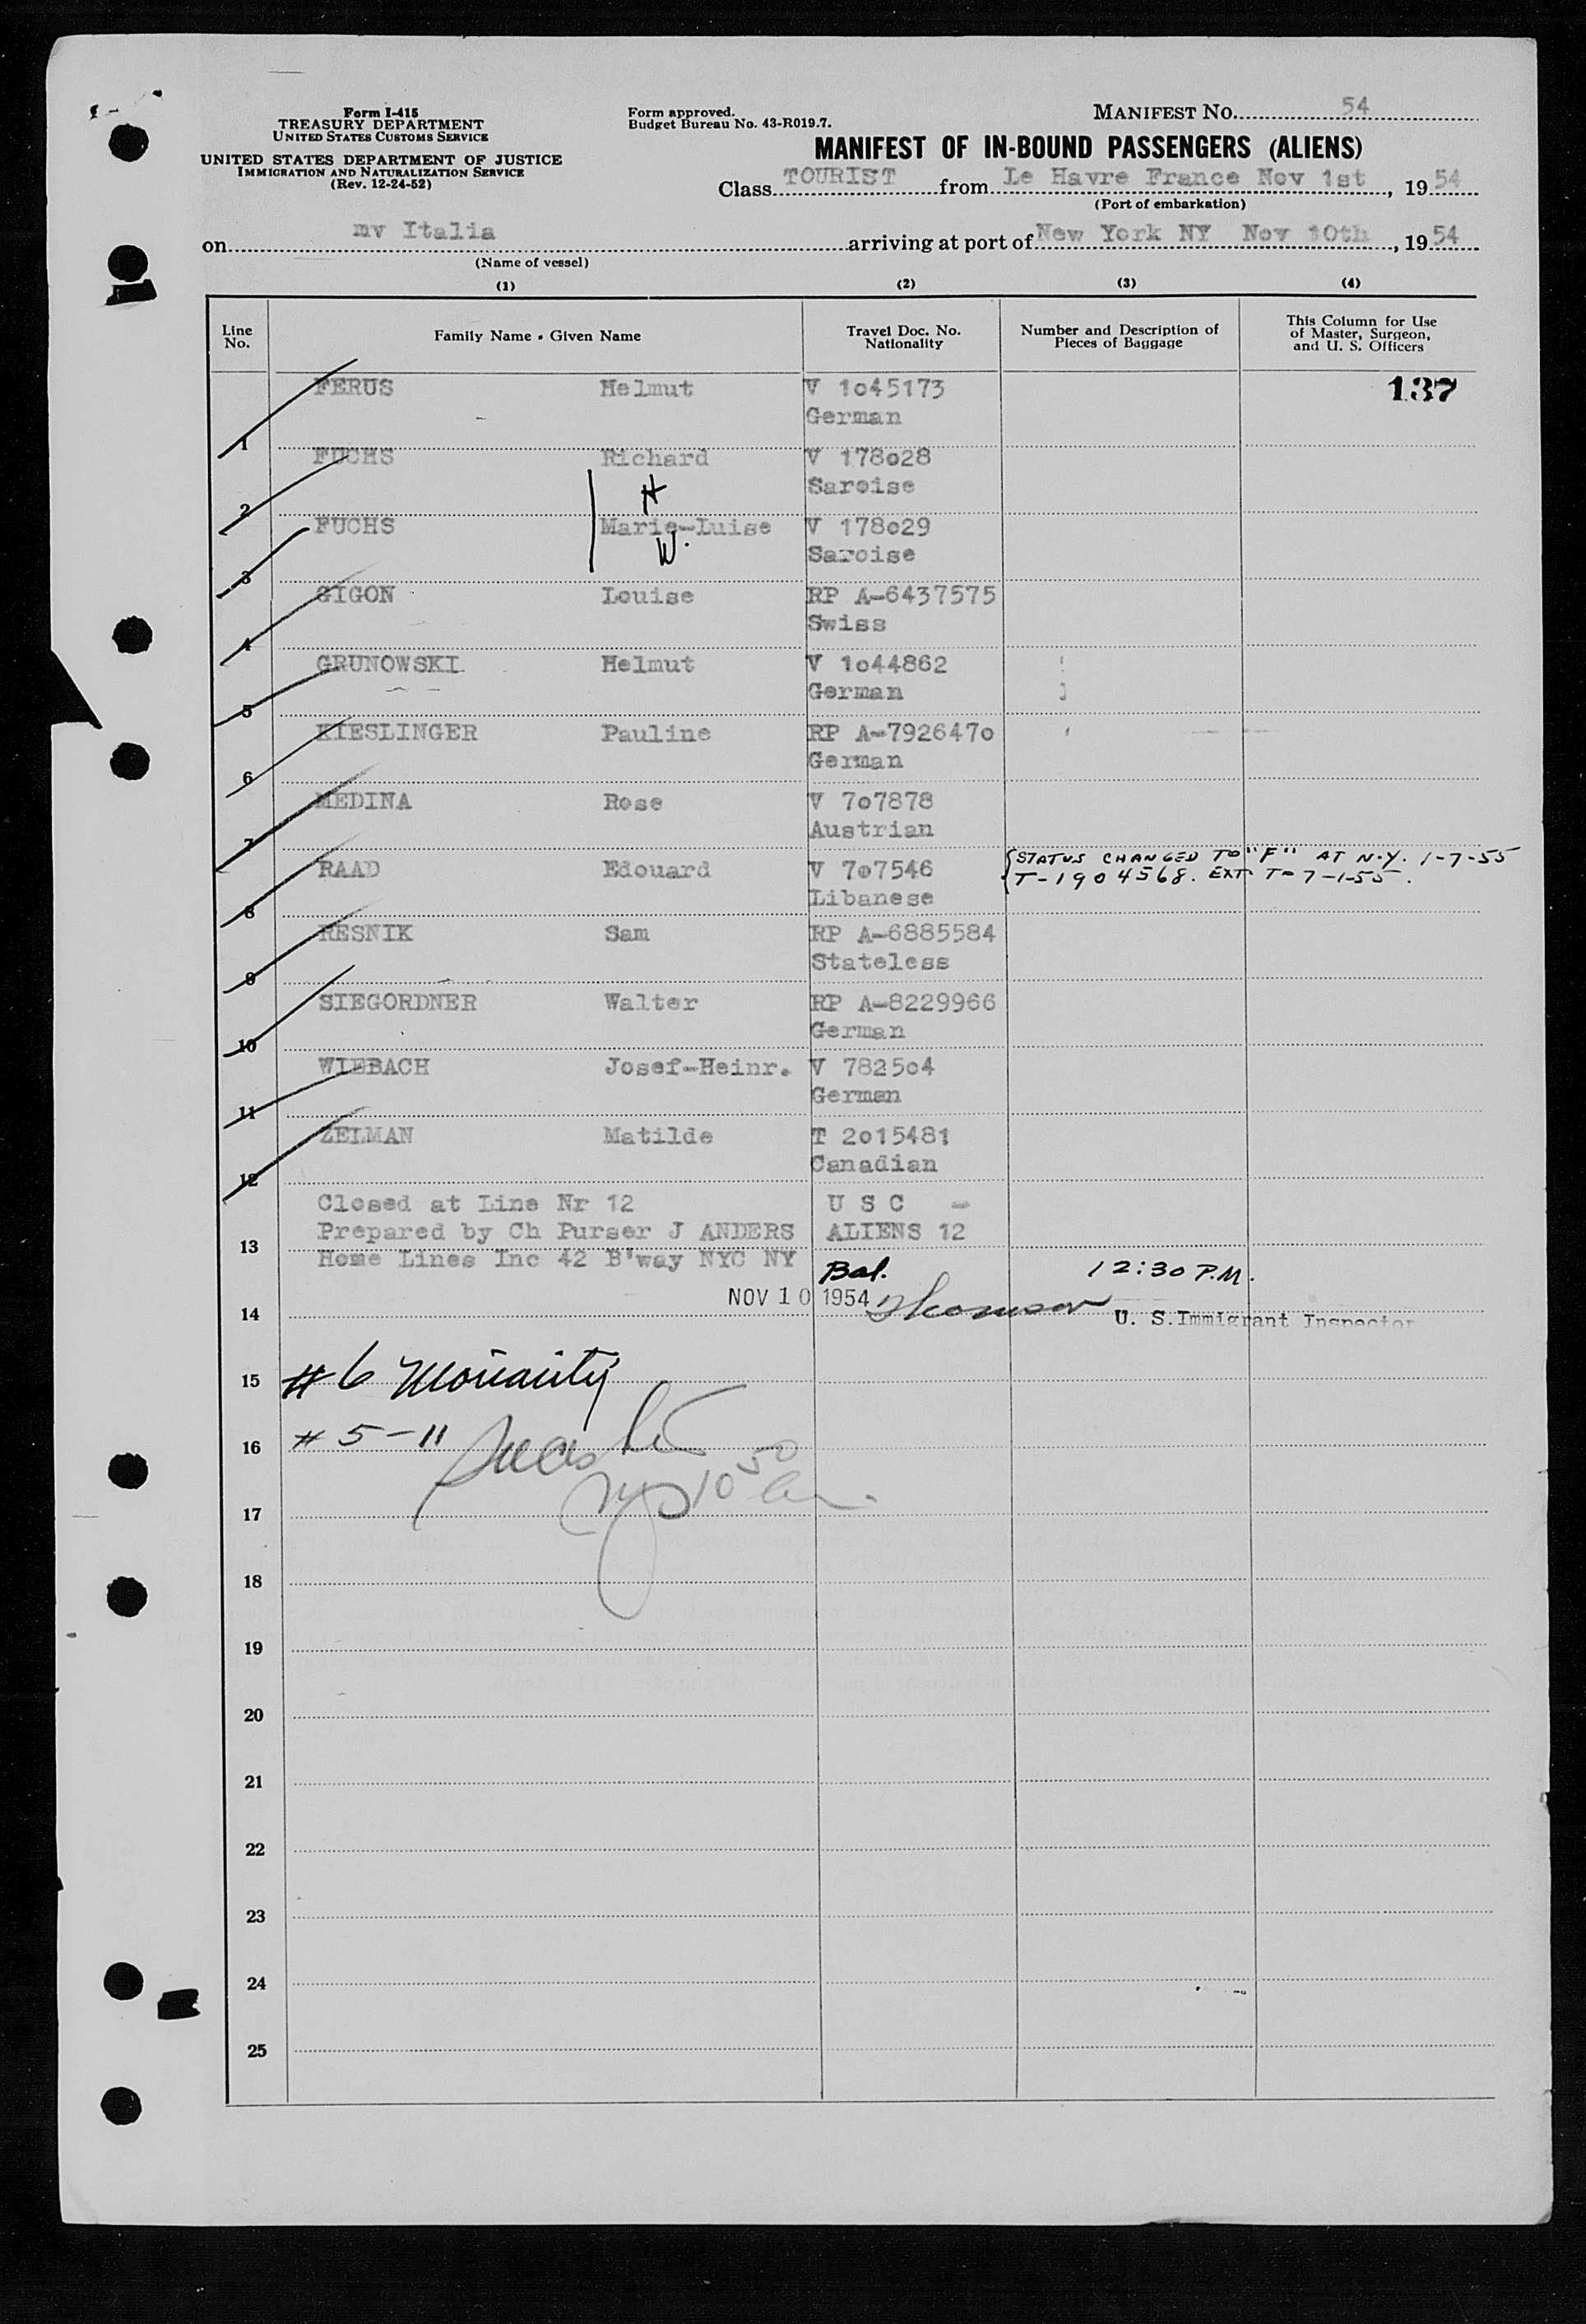 Form I-415
TREASURY DEPARTMENT
UNITED STATES CUSTOMS SERVICE
UNITED STATES DEPARTMENT OF JUSTICE
IMMIGRATION AND NATURALIZATION SERVICE
(Rev. 12-24-52)
Form approved.
Budget Bureau No. 43-R019.7.
MANIFEST NO. 54
MANIFEST OF IN-BOUND PASSENGERS (ALIENS)
Class TOURIST from Le Havre France Nov 1st, 19 54
(Port of embarkation)
on mv Italia arriving at port of New York NY Nov 10th, 19 54
(Name of vessel)
(1) (2) (3) (4)
Line No. Family Name - Given Name Travel Doc. No. Nationality Number and Description of Pieces of Baggage This Column for Use of Master, Surgeon, and U. S. Officers
137
1 FERUS Helmut V 1o45173
German
2 FUCHS Richard V 178o28
H Saroise
3 FUCHS Marie-Luise V 178o29
W. Saroise
4 GIGON Louise RP A-6437575
Swiss
5 GRUNOWSKI Helmut V 1o44862
German
6 KIESLINGER Pauline RP A-792647o
German
7 MEDINA Rose V 7o7878
Austrian
8 RAAD Edouard V 7o7546
Libanese
STATUS CHANGED TO "F" AT N.Y. 1-7-55
T-1904568. EXT. TO 7-1-55.
9 RESNIK Sam RP A-6885584
Stateless
10 SIEGORDNER Walter RP A-8229966
German
11 WIEBACH Josef-Heinr. V 7825o4
German
12 ZELMAN Matilde T 2o15481
Canadian
Closed at Line Nr 12 U S C -
13 Prepared by Ch Purser J ANDERS ALIENS 12
Home Lines Inc 42 B'way NYC NY
Bal. 12:30 P.M.
14 NOV 10 1954 Thomson U. S. Immigrant Inspector
15 #6 Moriarity
16 # 5-11
17 10 50
18
19
20
21
22
23
24
25